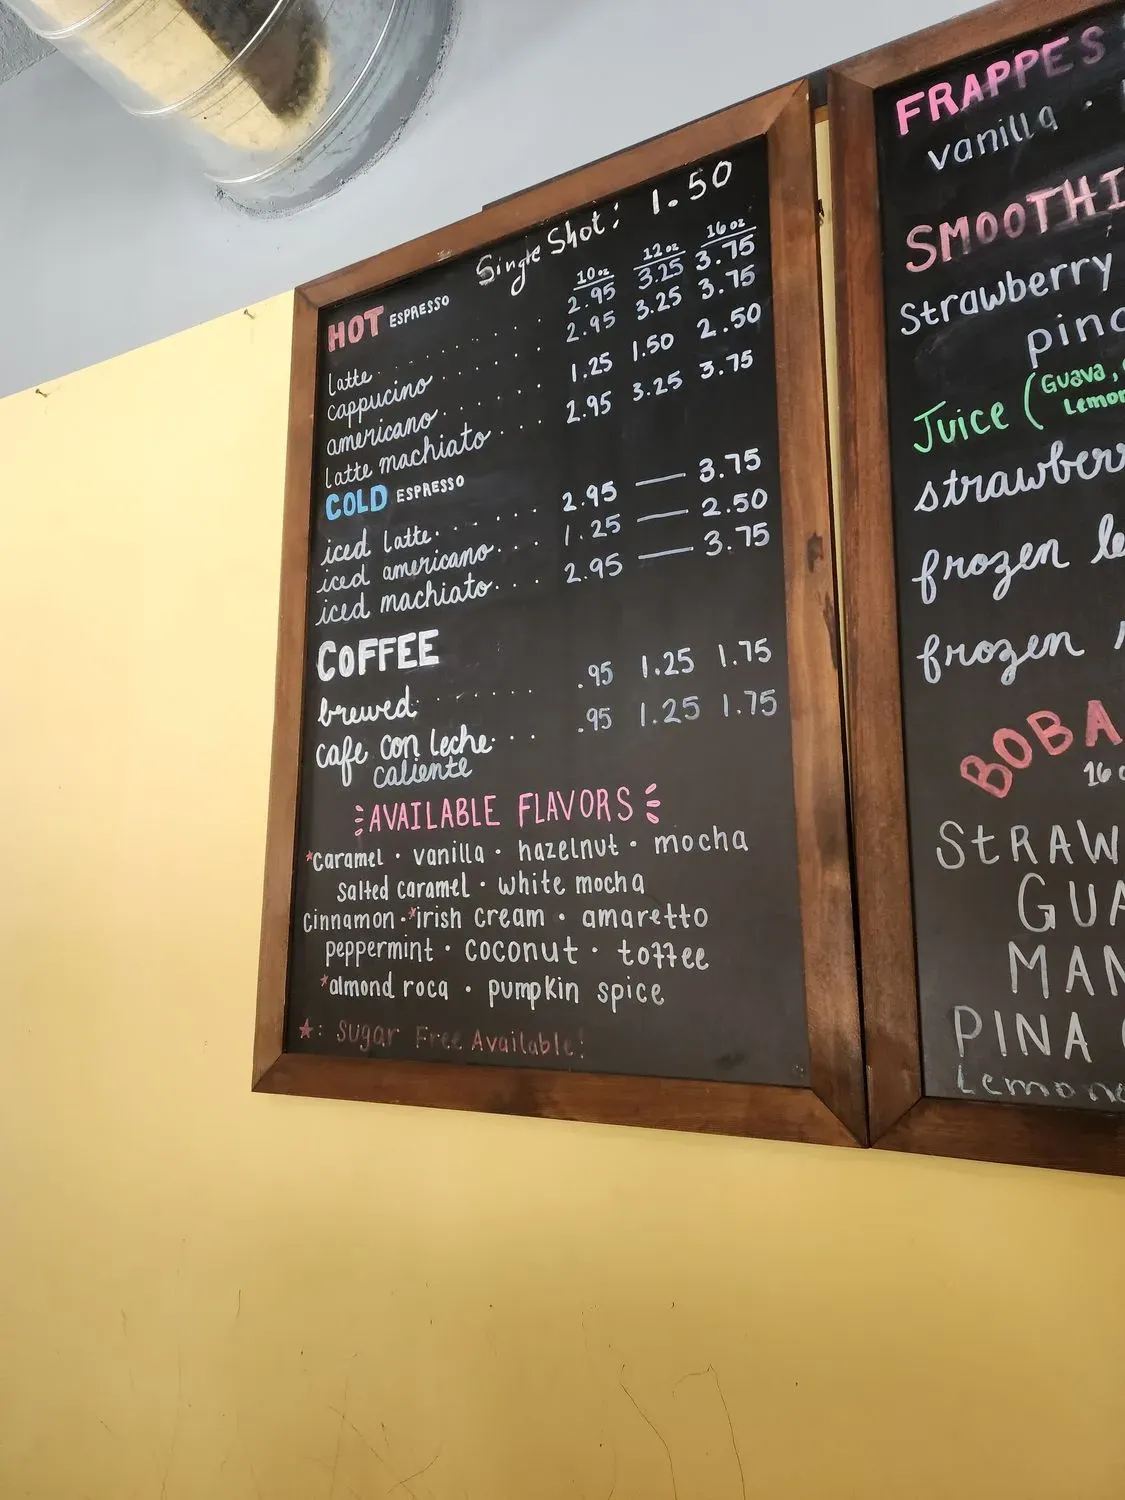 Single Shot: 1.50
10 oz 12 oz 16 oz
HOT ESPRESSO
latte 2.95 3.25 3.75
cappucino 2.95 3.25 3.75
americano 1.25 1.50 2.50
latte machiato 2.95 3.25 3.75
COLD ESPRESSO
iced latte 2.95 — 3.75
iced americano 1.25 — 2.50
iced machiato 2.95 — 3.75
COFFEE
brewed .95 1.25 1.75
cafe con leche .95 1.25 1.75
caliente
AVAILABLE FLAVORS
*Caramel · vanilla · hazelnut · mocha
salted caramel · white mocha
cinnamon · *irish cream · amaretto
peppermint · coconut · toffee
*almond roca · pumpkin spice
★: Sugar Free Available!
FRAPPES
vanilla ·
SMOOTHI
Strawberry
pin
Juice (Guava,
Lemon
strawberr
frozen le
frozen
BOBA
16 o
STRAW
GUA
MAN
PINA
Lemona